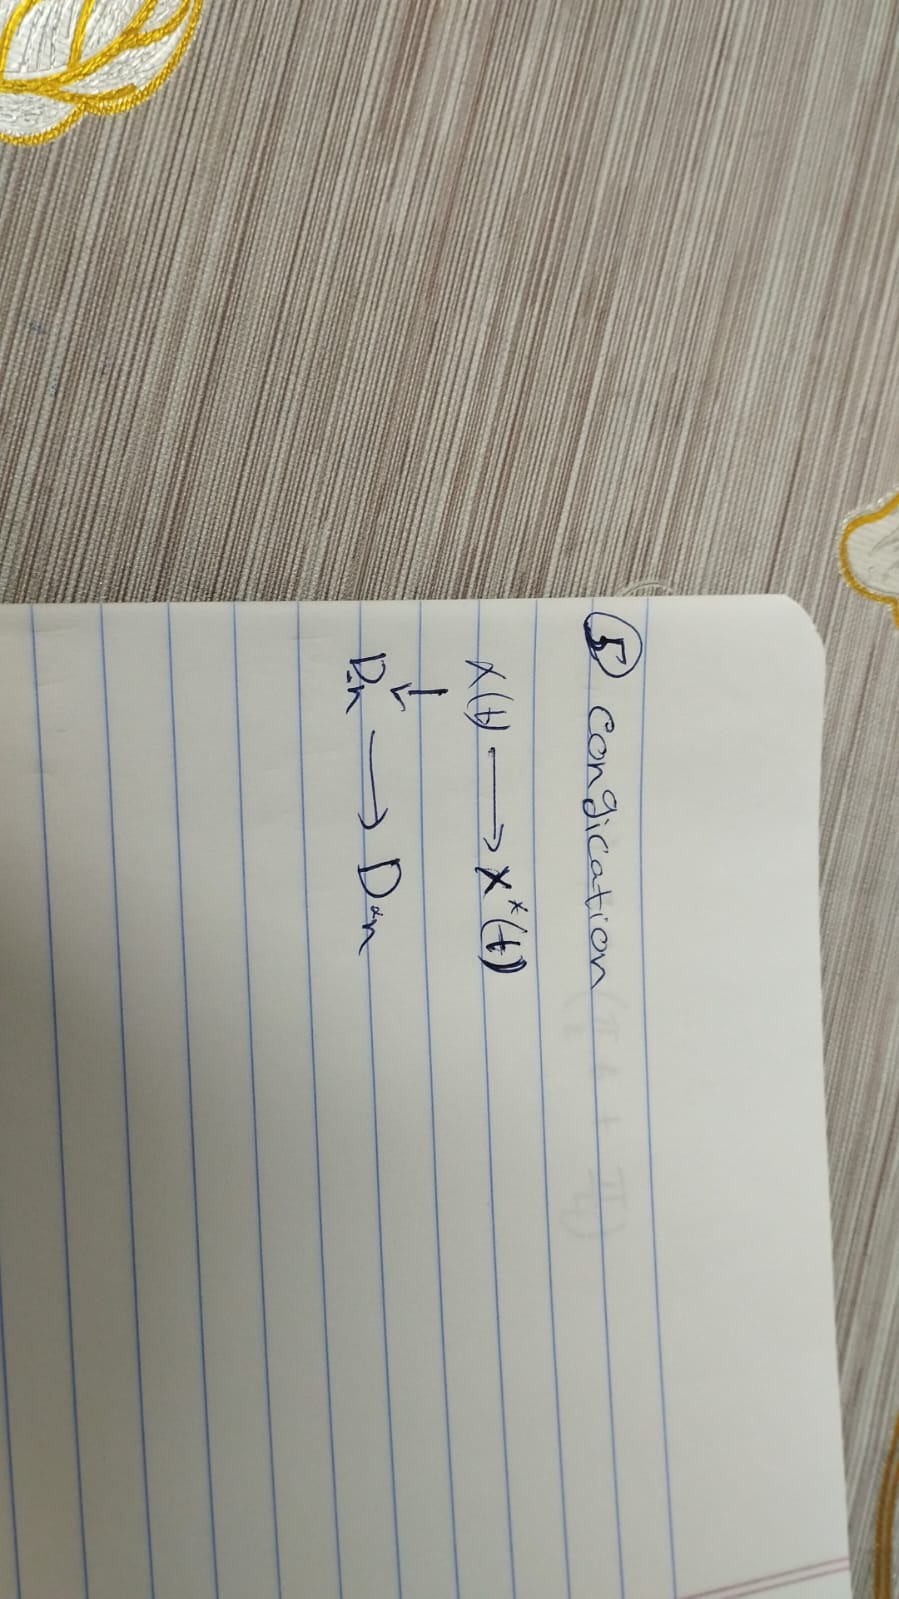 ⑤ congication
x(t) → x*(t)
↓
D-n → D*n